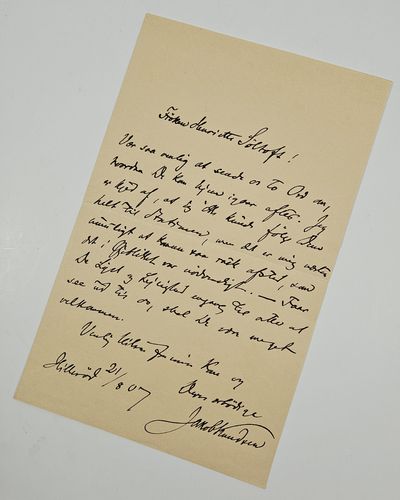 Frøken Henriette Søltoft!
Vær saa venlig at sende os to Ord om,
hvordan De kom hjem igaar aftes. Jeg
er kjed af, at jeg ikke kunde følge Dem
helt til Stationen, men det er mig
umuligt at komme saa raskt afsted, som
det var nødvendigt. — Faar
De Lyst og Lejlighed engang til at
se ud til os, skal De være meget
velkommen.
Venlig Hilsen fra min Kone og
Deres ærbødige
Hillerød 21/8 07
Jakob Knudsen